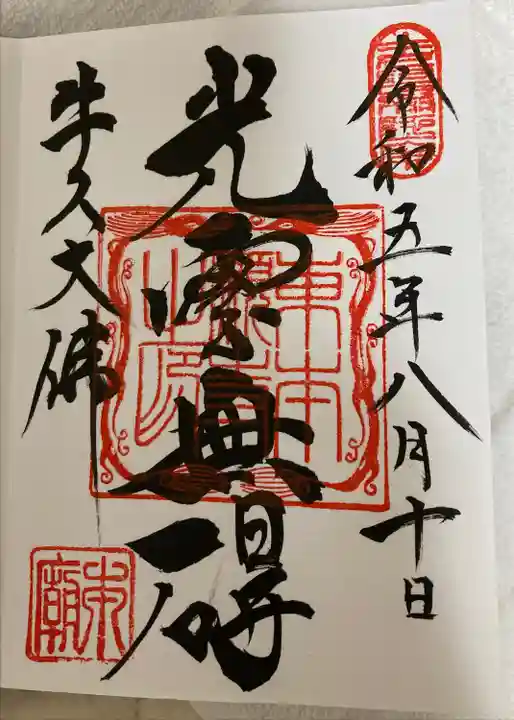 令和五年八月十日
光雲無碍
東本願寺之印
牛久大佛